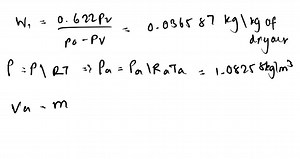 W₁ = 0.622Pv / Pa - Pv = 0.036587 kg/kg of
dry air
P = P/RT => Pa = Pa/RaTa = 1.0825 kg/m³
Va = m